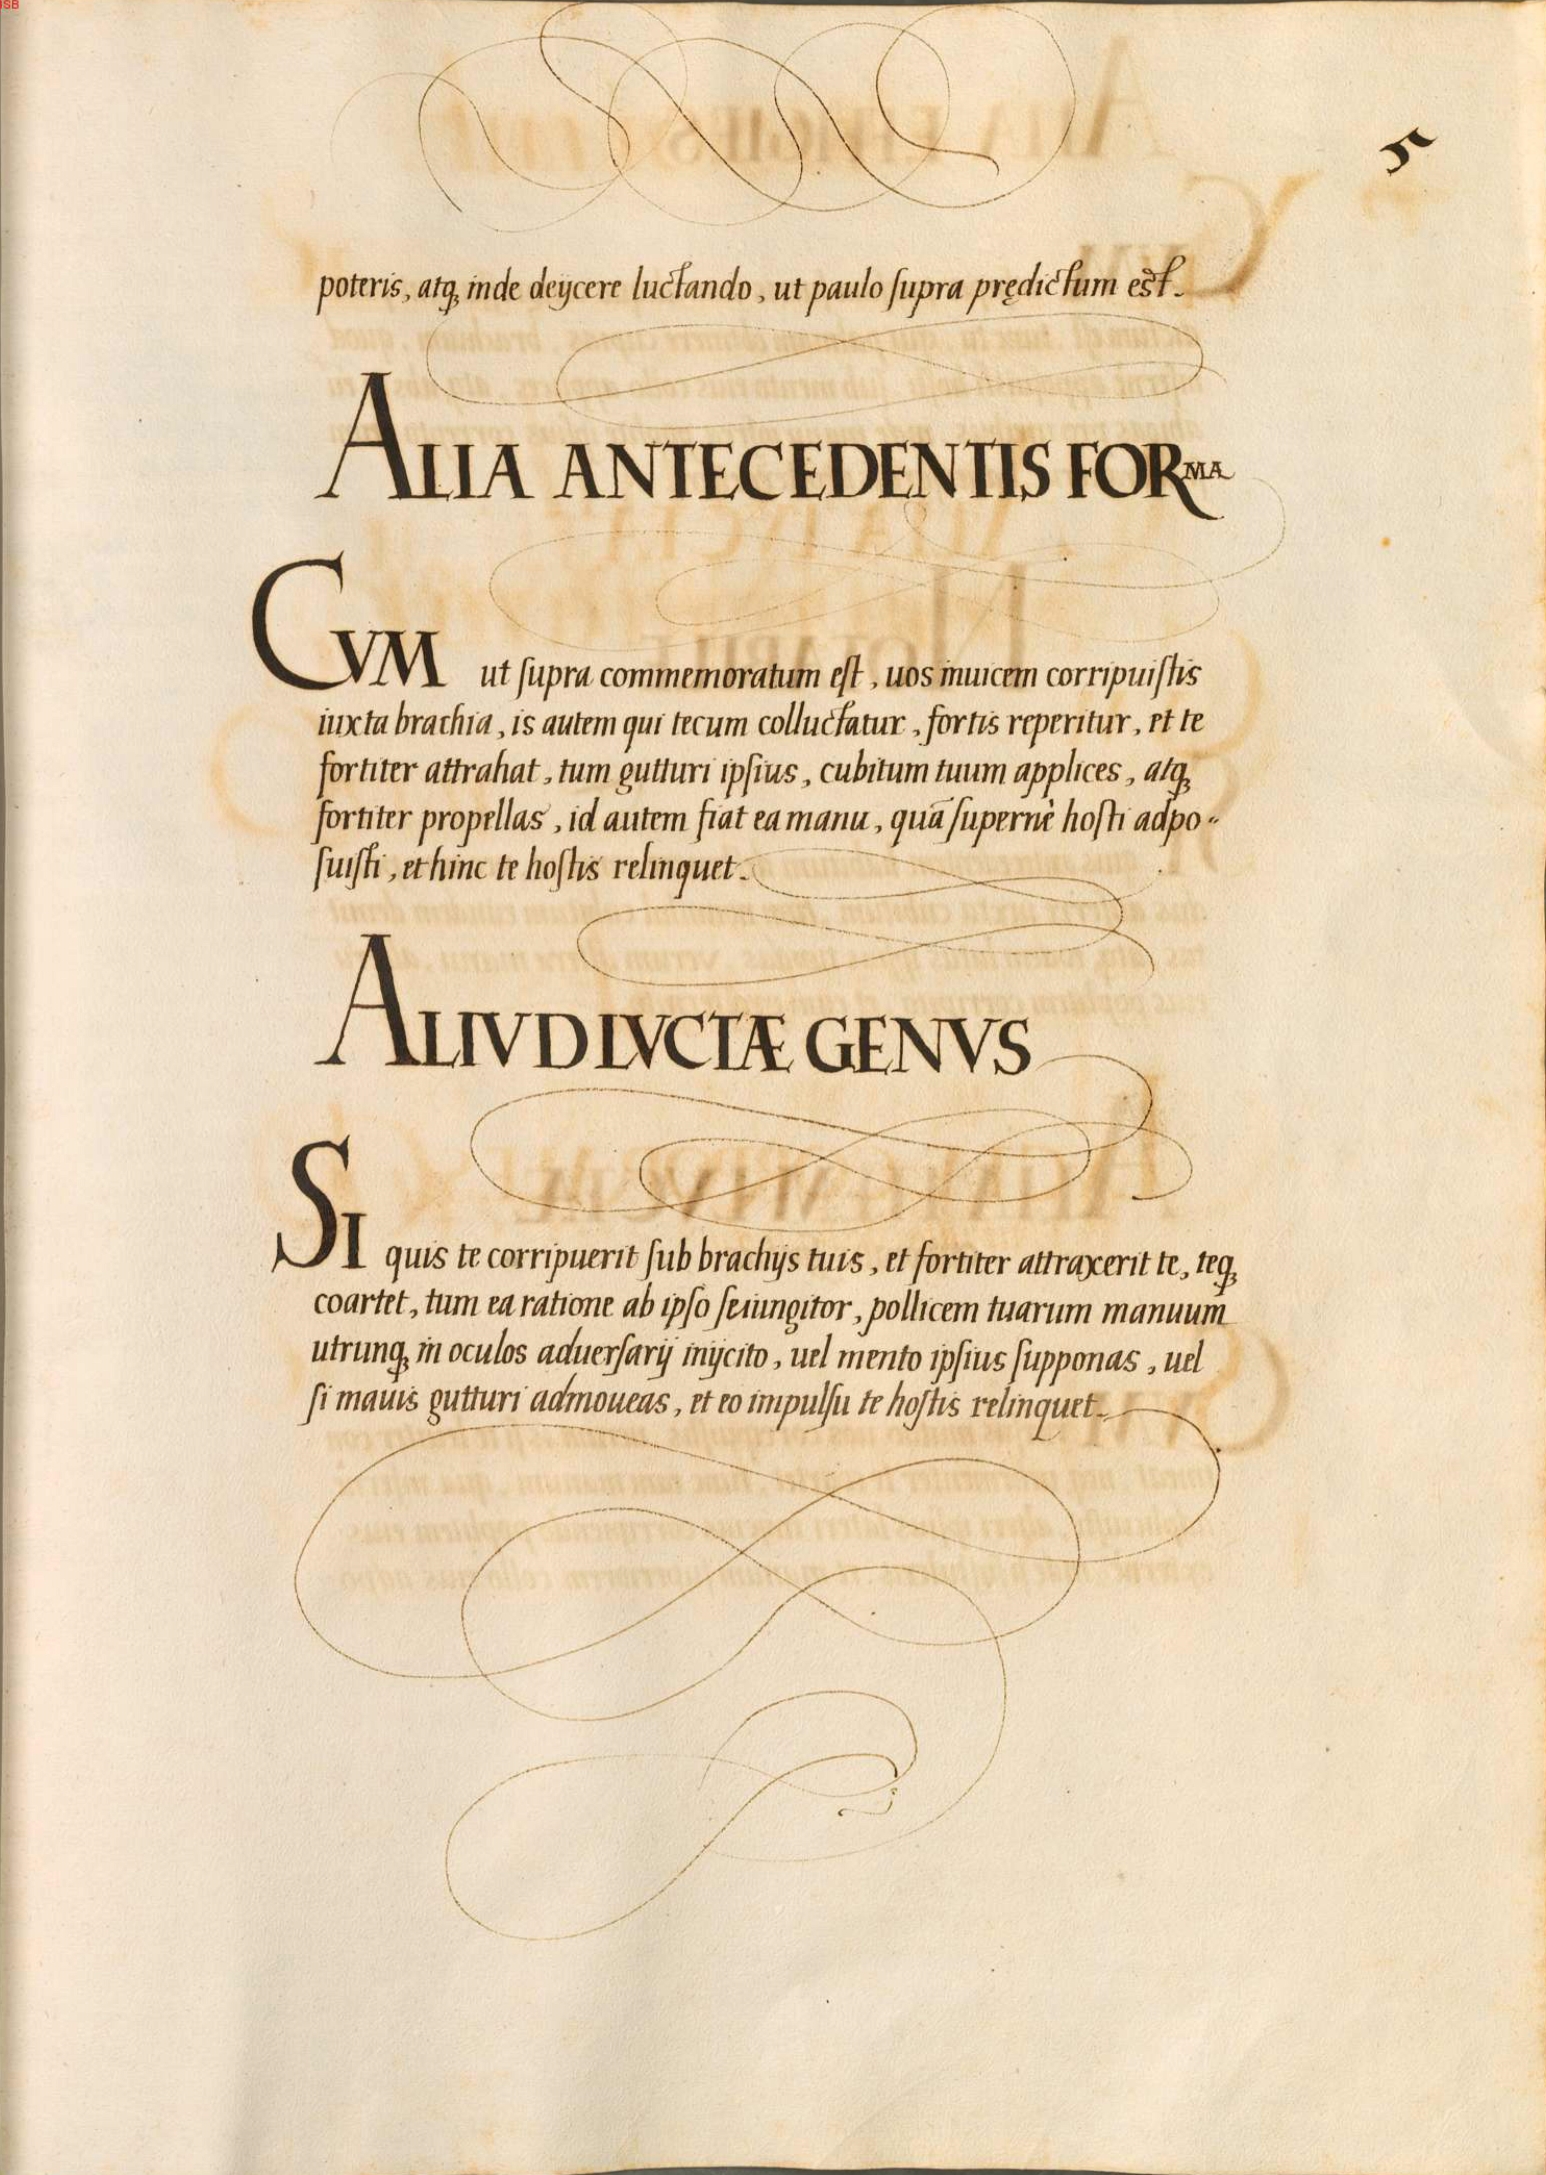 5
poteris, atq₃ inde deijcere luctando, ut paulo ſupra prędictum est.
ALIA ANTECEDENTIS FORMA
CVM ut ſupra commemoratum eſt, uos inuicem corripuiſtis
iuxta brachia, is autem qui tecum colluctatur, fortis reperitur, et te
fortiter attrahat, tum gutturi ipſius, cubitum tuum applices, atq₃
fortiter propellas, id autem fiat ea manu, quā ſupernè hoſti adpo-
ſuiſti, et hinc te hoſtis relinquet.
ALIVD LVCTÆ GENVS
SI quis te corripuerit ſub brachijs tuis, et fortiter attraxerit te, teq₃
coartet, tum ea ratione ab ipſo ſeiungitor, pollicem tuarum manuum
utrunq₃ in oculos aduerſarij inijcito, uel mento ipſius ſupponas, uel
ſi mauis gutturi admoueas, et eo impulſu te hoſtis relinquet.